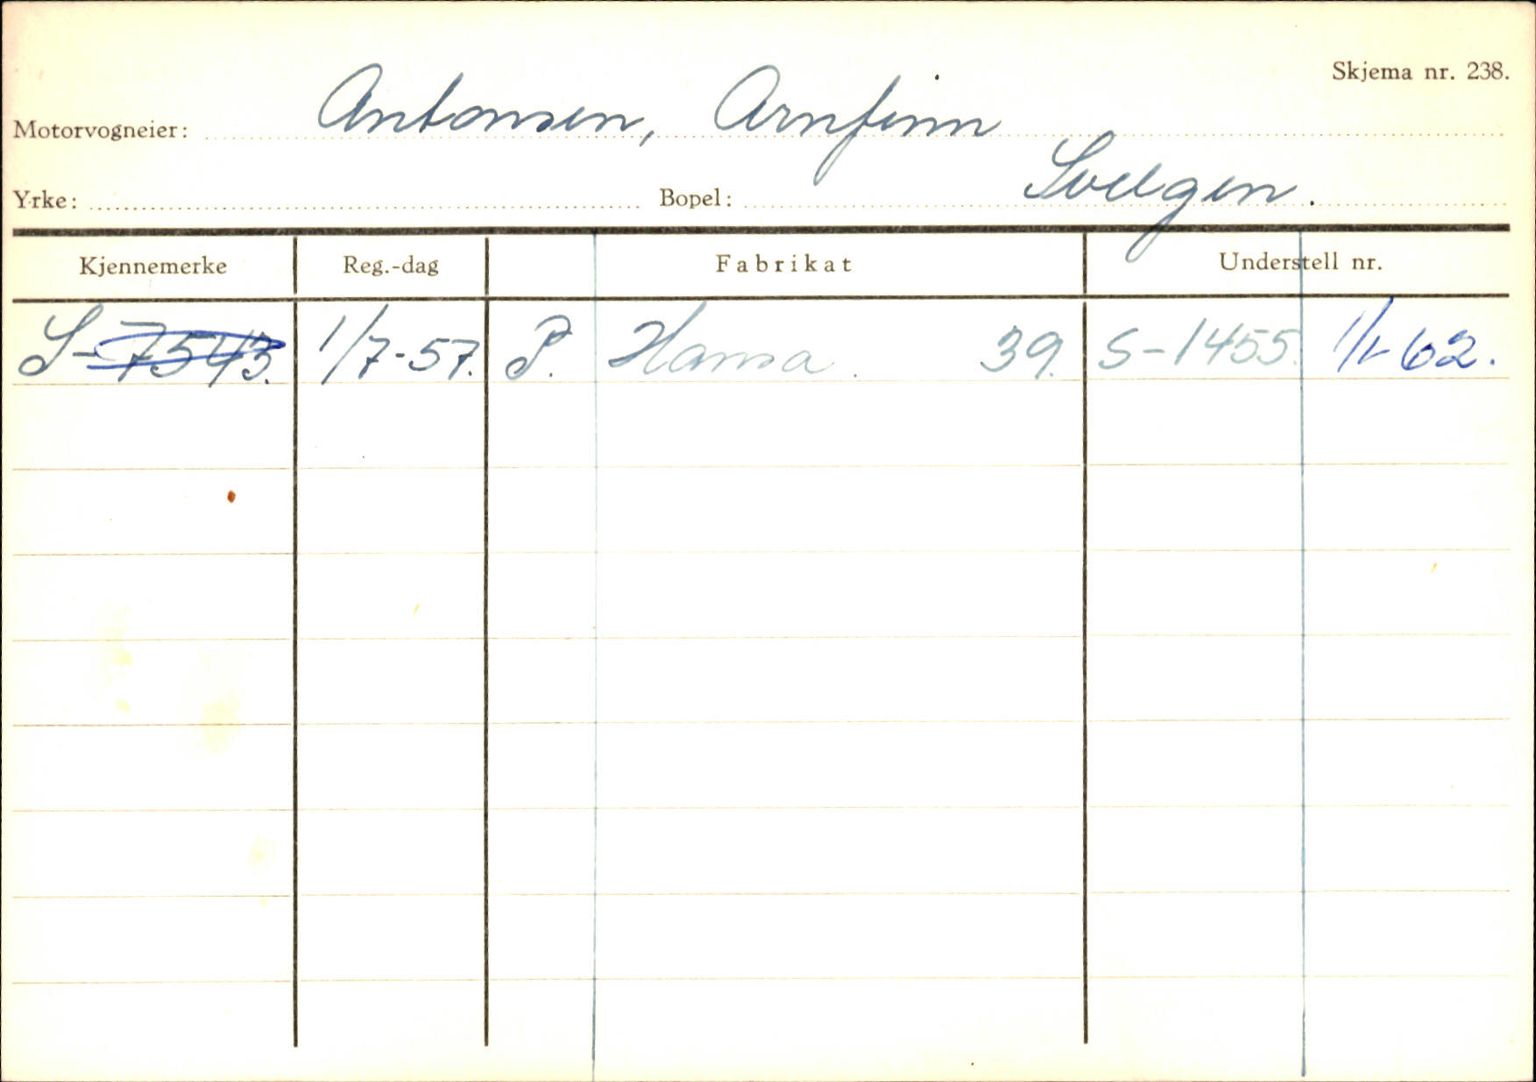 Skjema nr. 238.
Motorvogneier: Antonsen, Arnfinn
Yrke: Bopel: Svelgen.
Kjennemerke Reg.-dag Fabrikat Understell nr.
S-7543. 1/7-57. P. Hansa. 39. S-1455. 1/1-62.